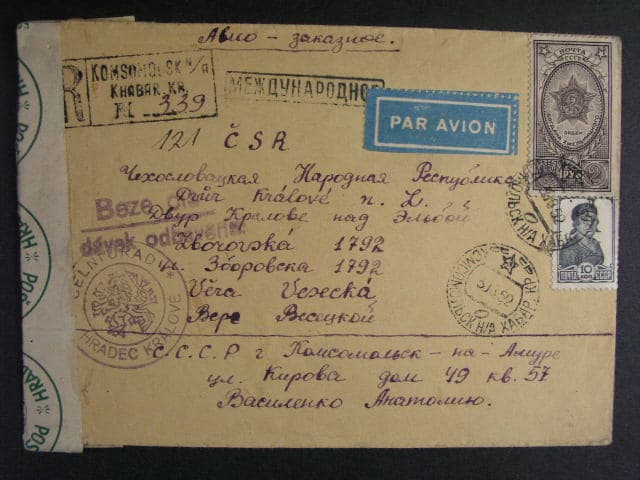 Авио - заказное.
R
KOMSOMOLSK n/a
KHABAR. KR.
339
МЕЖДУНАРОДНОЕ
PAR AVION
ПОЧТА
СССР
ОРДЕН
2
121 ČSR
Чехословацкая Народная Республика
Dvůr Králové n. L.
Двур Кралове над Эльбой
Zborovská 1792
ул. Зборовска 1792
Věra Veselká
Вере Веселкой
Beze cla
dávek odbaveno
CELNÍ ÚŘAD
HRADEC KRÁLOVÉ
КОМСОМОЛЬСК Н/А ХАБАР. КР.
10
ПОЧТА СССР
С.С.С.Р г Комсомольск-на-Амуре
ул. Кирова дом 49 кв. 57
Василенко Анатолию.
HR
POŠ
HRAD
POS